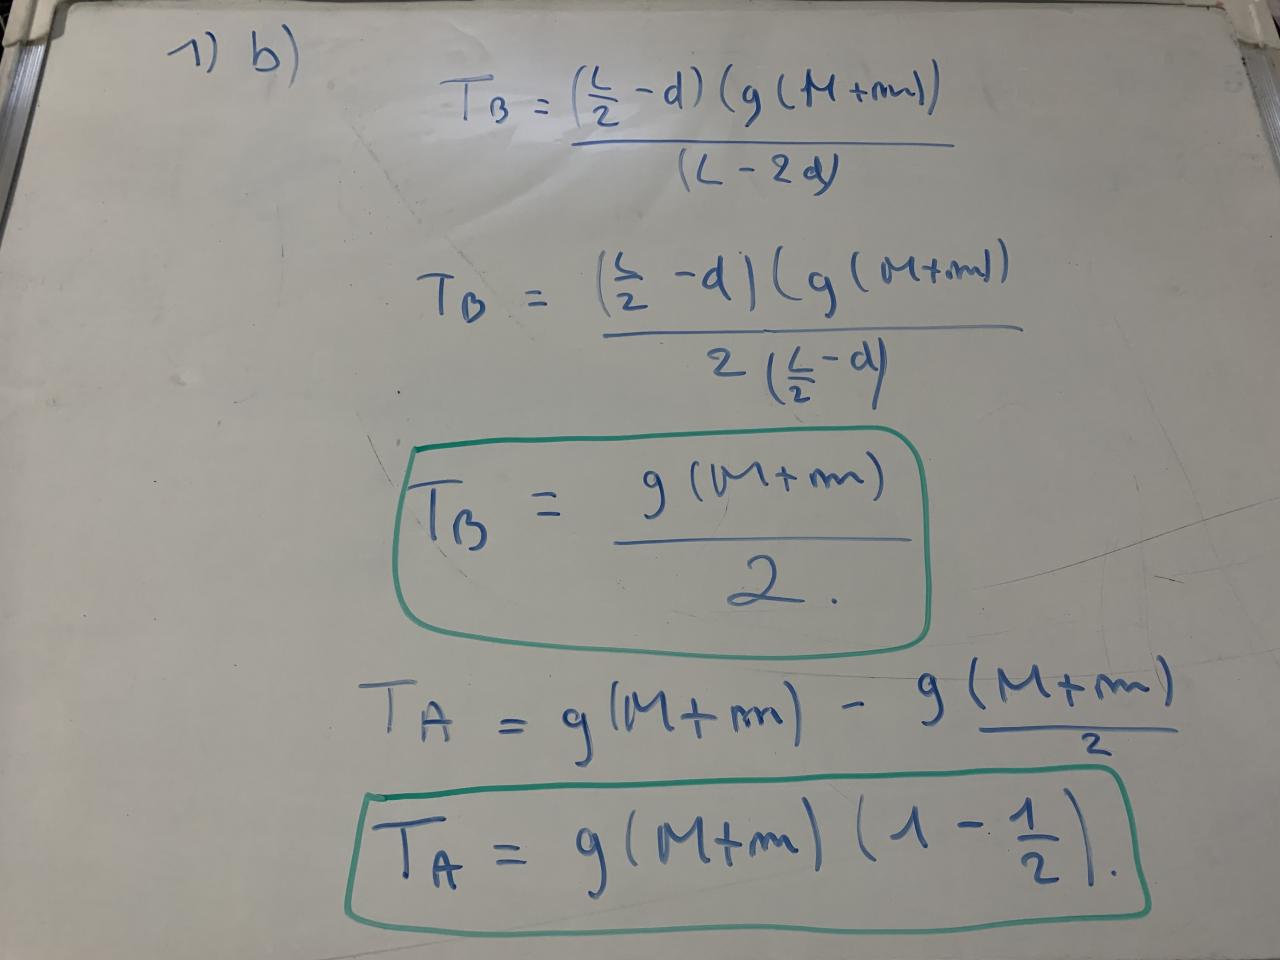 1) b)
T_B = (L/2 - d) (g (M+m)) / (L - 2d)
T_B = (L/2 - d) (g (M+m)) / 2 (L/2 - d)
T_B = g (M+m) / 2.
T_A = g (M+m) - g (M+m) / 2
T_A = g (M+m) (1 - 1/2).